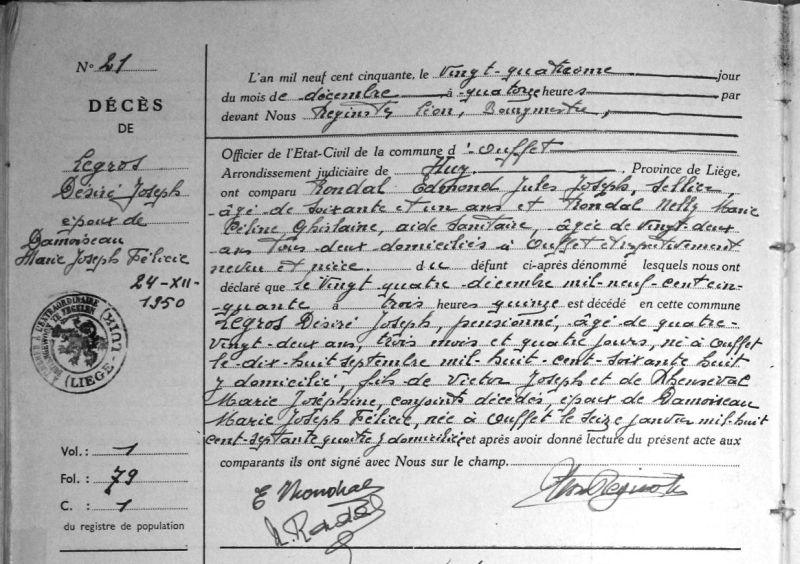 N° 21
DÉCÈS
DE
Legros
Désiré Joseph
époux de
Damoiseau
Marie Joseph Félicie
24-XII-
1950
(LIEGE)
Vol. : 1
Fol. : 79
C. : 1
du registre de population
L'an mil neuf cent cinquante, le vingt-quatrième jour
du mois de décembre à quatorze heures par
devant Nous Reginster Léon, Bourgmestre,
Officier de l'Etat-Civil de la commune d'Ouffet
Arrondissement judiciaire de Huy Province de Liége,
ont comparu Rondal Edmond Jules Joseph, sellier,
âgé de soixante et un ans et Rondal Nelly Marie
Ghislaine, aide sanitaire, âgée de vingt-deux
ans tous deux domiciliés à Ouffet et respectivement
neveu et nièce. du défunt ci-après dénommé lesquels nous ont
déclaré que le vingt quatre décembre mil-neuf-cent cin-
quante à trois heures quinze est décédé en cette commune
Legros Désiré Joseph, pensionné, âgé de quatre-
vingt-deux ans, trois mois et quatre jours, né à Ouffet
le dix-huit septembre mil-huit-cent-soixante huit
y domicilié, fils de Victor Joseph et de
Marie Joséphine, conjoints décédés, époux de Damoiseau
Marie Joseph Félicie, née à Ouffet le seize janvier mil-huit
cent-septante quatre y domiciliée et après avoir donné lecture du présent acte aux
comparants ils ont signé avec Nous sur le champ.
E Rondal
N. Rondal